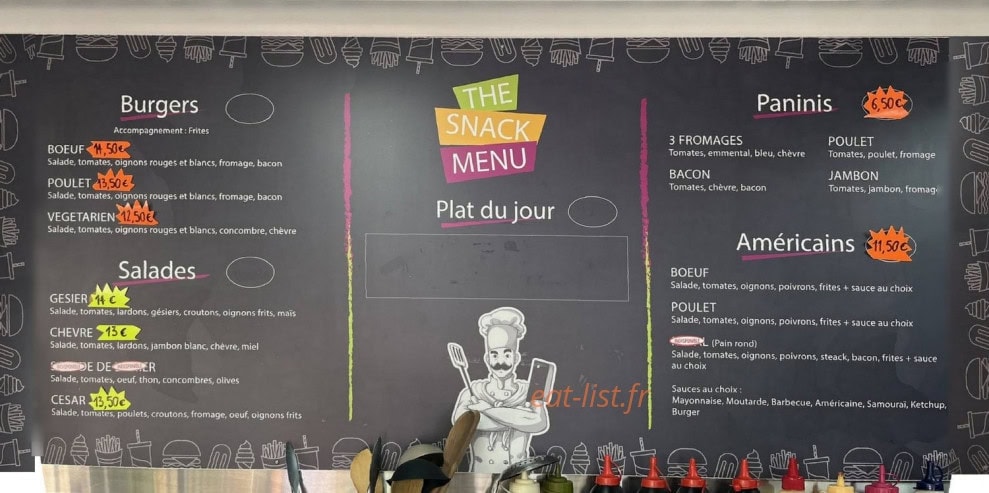 Burgers
Accompagnement : Frites
BOEUF 14,50€
Salade, tomates, oignons rouges et blancs, fromage, bacon
POULET 13,50€
Salade, tomates, oignons rouges et blancs, fromage, bacon
VEGETARIEN 12,50€
Salade, tomates, oignons rouges et blancs, concombre, chèvre
Salades
GESIER 14 €
Salade, tomates, lardons, gésiers, croutons, oignons frits, maïs
CHEVRE 13 €
Salade, tomates, lardons, jambon blanc, chèvre, miel
DE
Salade, tomates, oeuf, thon, concombres, olives
CESAR 13,50€
Salade, tomates, poulets, croutons, fromage, oeuf, oignons frits
THE
SNACK
MENU
Plat du jour
eat-list.fr
Paninis 6,50€
3 FROMAGES
Tomates, emmental, bleu, chèvre
POULET
Tomates, poulet, fromage
BACON
Tomates, chèvre, bacon
JAMBON
Tomates, jambon, fromage
Américains 11,50€
BOEUF
Salade, tomates, oignons, poivrons, frites + sauce au choix
POULET
Salade, tomates, oignons, poivrons, frites + sauce au choix
(Pain rond)
Salade, tomates, oignons, poivrons, steack, bacon, frites + sauce
au choix
Sauces au choix :
Mayonnaise, Moutarde, Barbecue, Américaine, Samouraï, Ketchup,
Burger